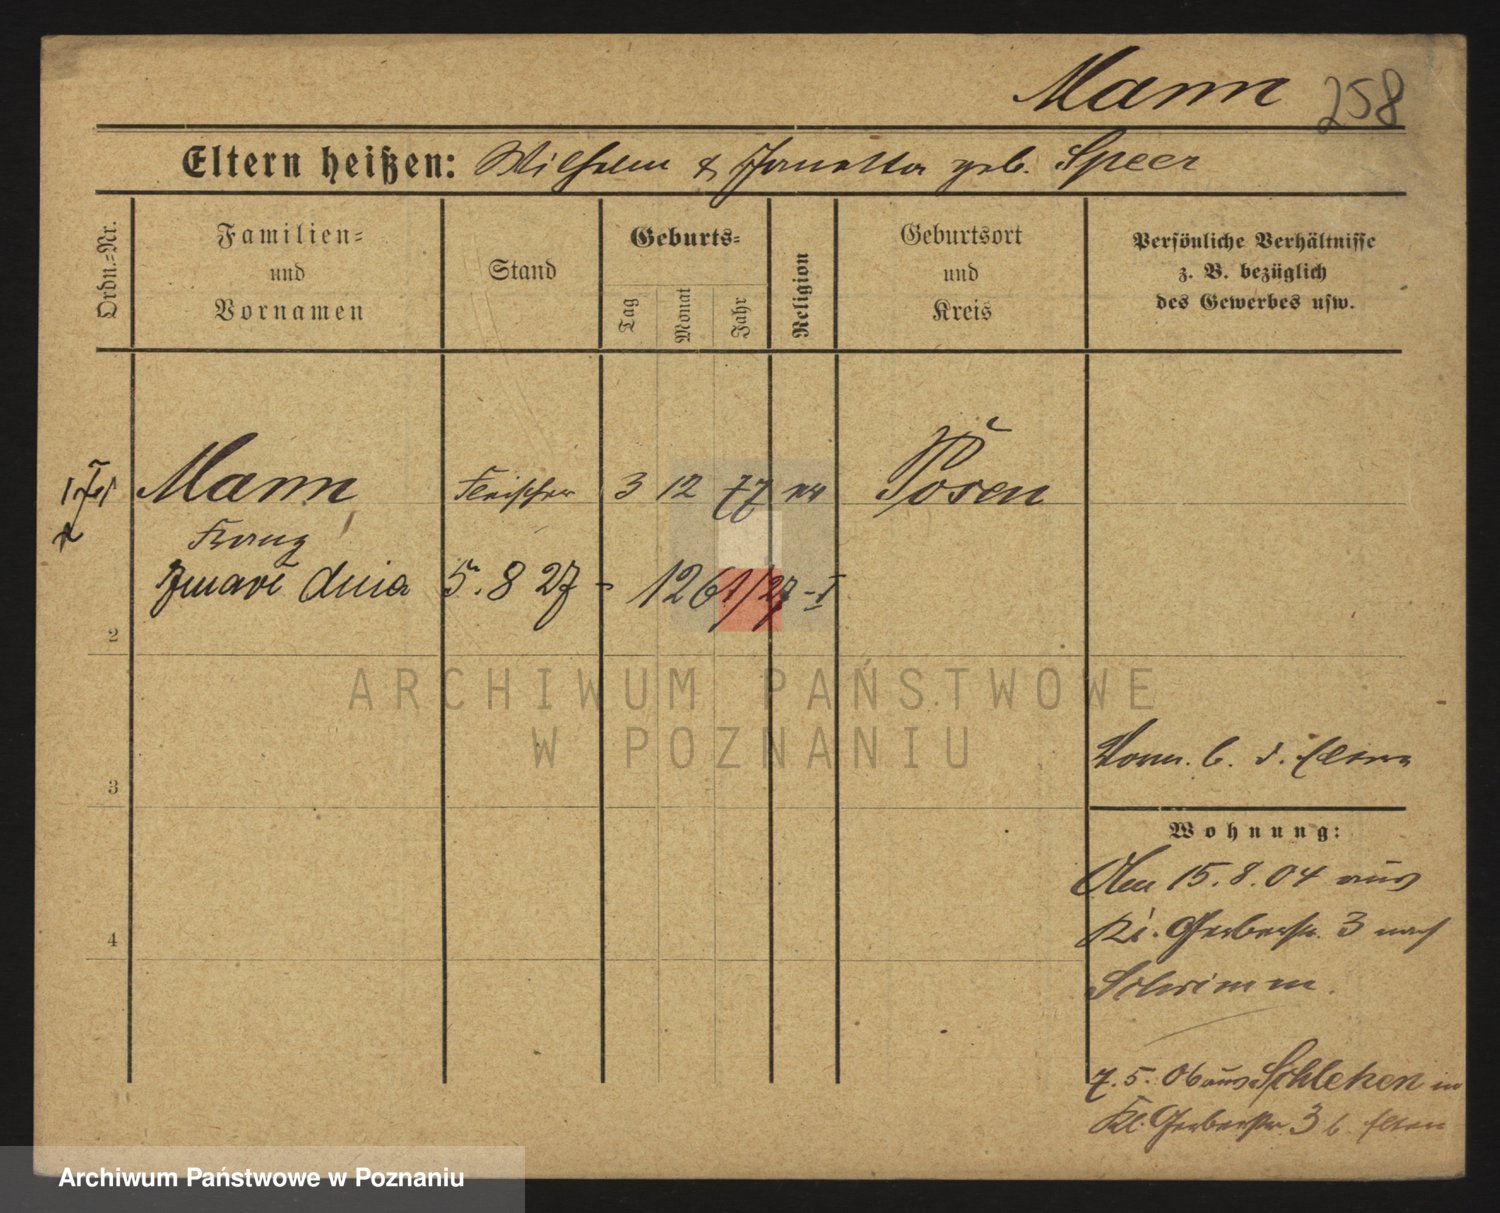 Mann 258
Eltern heißen: Wilhelm & geb. Speer
Ordn.-Nr.
Familien-
und
Vornamen
Stand
Geburts-
Tag
Monat
Jahr
Religion
Geburtsort
und
Kreis
Persönliche Verhältnisse
z. B. bezüglich
des Gewerbes usw.
Mann Fleischer 3 12 77 Posen
Franz
Zmarł dnia 5. 8 27 - 1261/27 - I
2
ARCHIWUM PAŃSTWOWE
W POZNANIU
3
b. d. Eltern
Wohnung:
15. 8. 04 aus
Kl. Gerberstr. 3 nach
Schrimm.
4
7. 5. 06 aus Schlehen in
Kl. Gerberstr. 3 b. Eltern
Archiwum Państwowe w Poznaniu